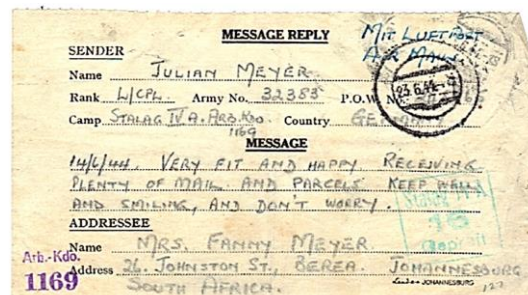 MESSAGE REPLY
MIT LUFTPOST
AIR MAIL
SENDER
Name JULIAN MEYER
Rank L/CPL. Army No. 32383 P.O.W. No.
23.6.44
Camp STALAG IV A. ARB. KDO Country GERMANY
1169
MESSAGE
14/6/44. VERY FIT AND HAPPY. RECEIVING
PLENTY OF MAIL AND PARCELS. KEEP WELL
AND SMILING, AND DON'T WORRY.
Stalag IV A
16
Geprüft
ADDRESSEE
Name MRS. FANNY MEYER
Arb.-Kdo.
1169
Address 26. JOHNSTON ST., BEREA. JOHANNESBURG
SOUTH AFRICA.
JOHANNESBURG